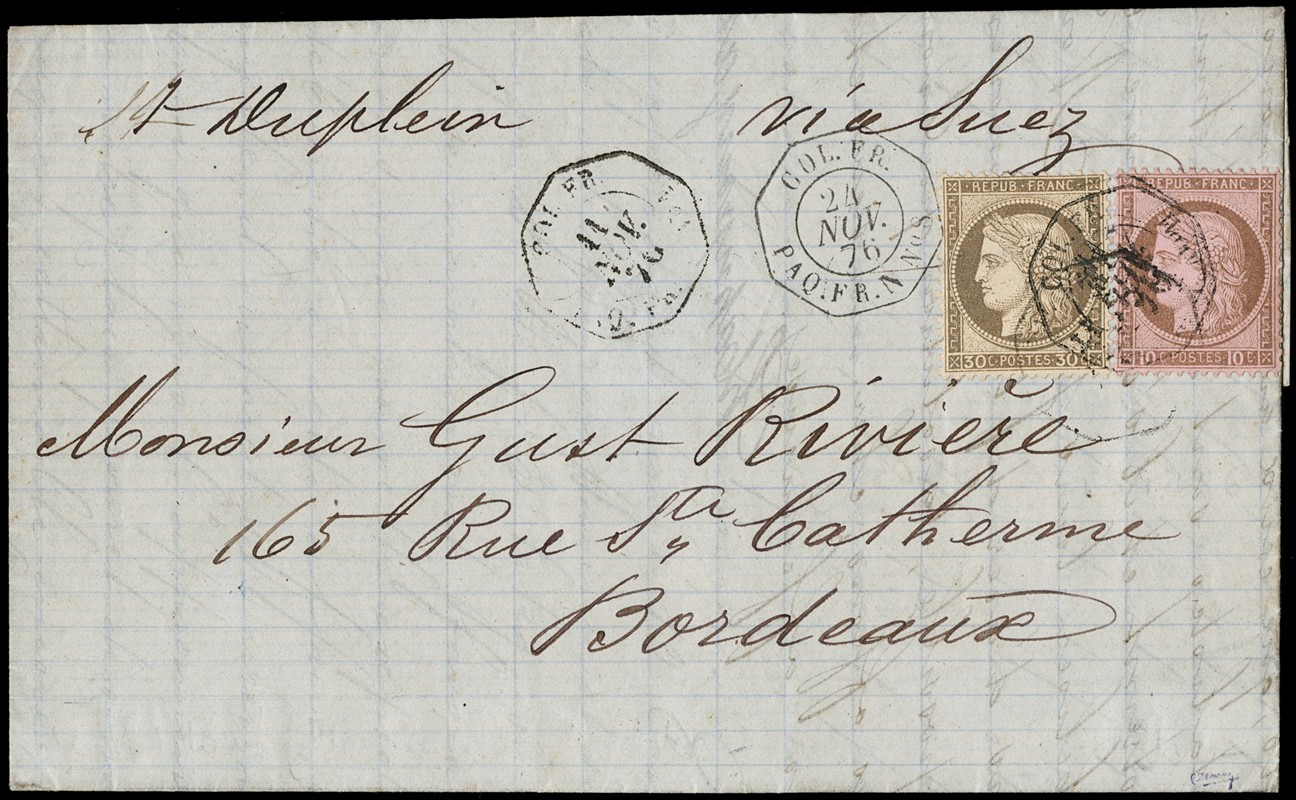 St Dupleix via Suez
COL. FR.
11
NOV.
76
COL. FR.
24
NOV.
76
PAQ. FR. N No8
REPUB·FRANC·
30 C·POSTES·30
REPUB·FRANC·
10 C·POSTES·10 C·
Monsieur Gust Rivière
165 Rue Ste Catherine
Bordeaux